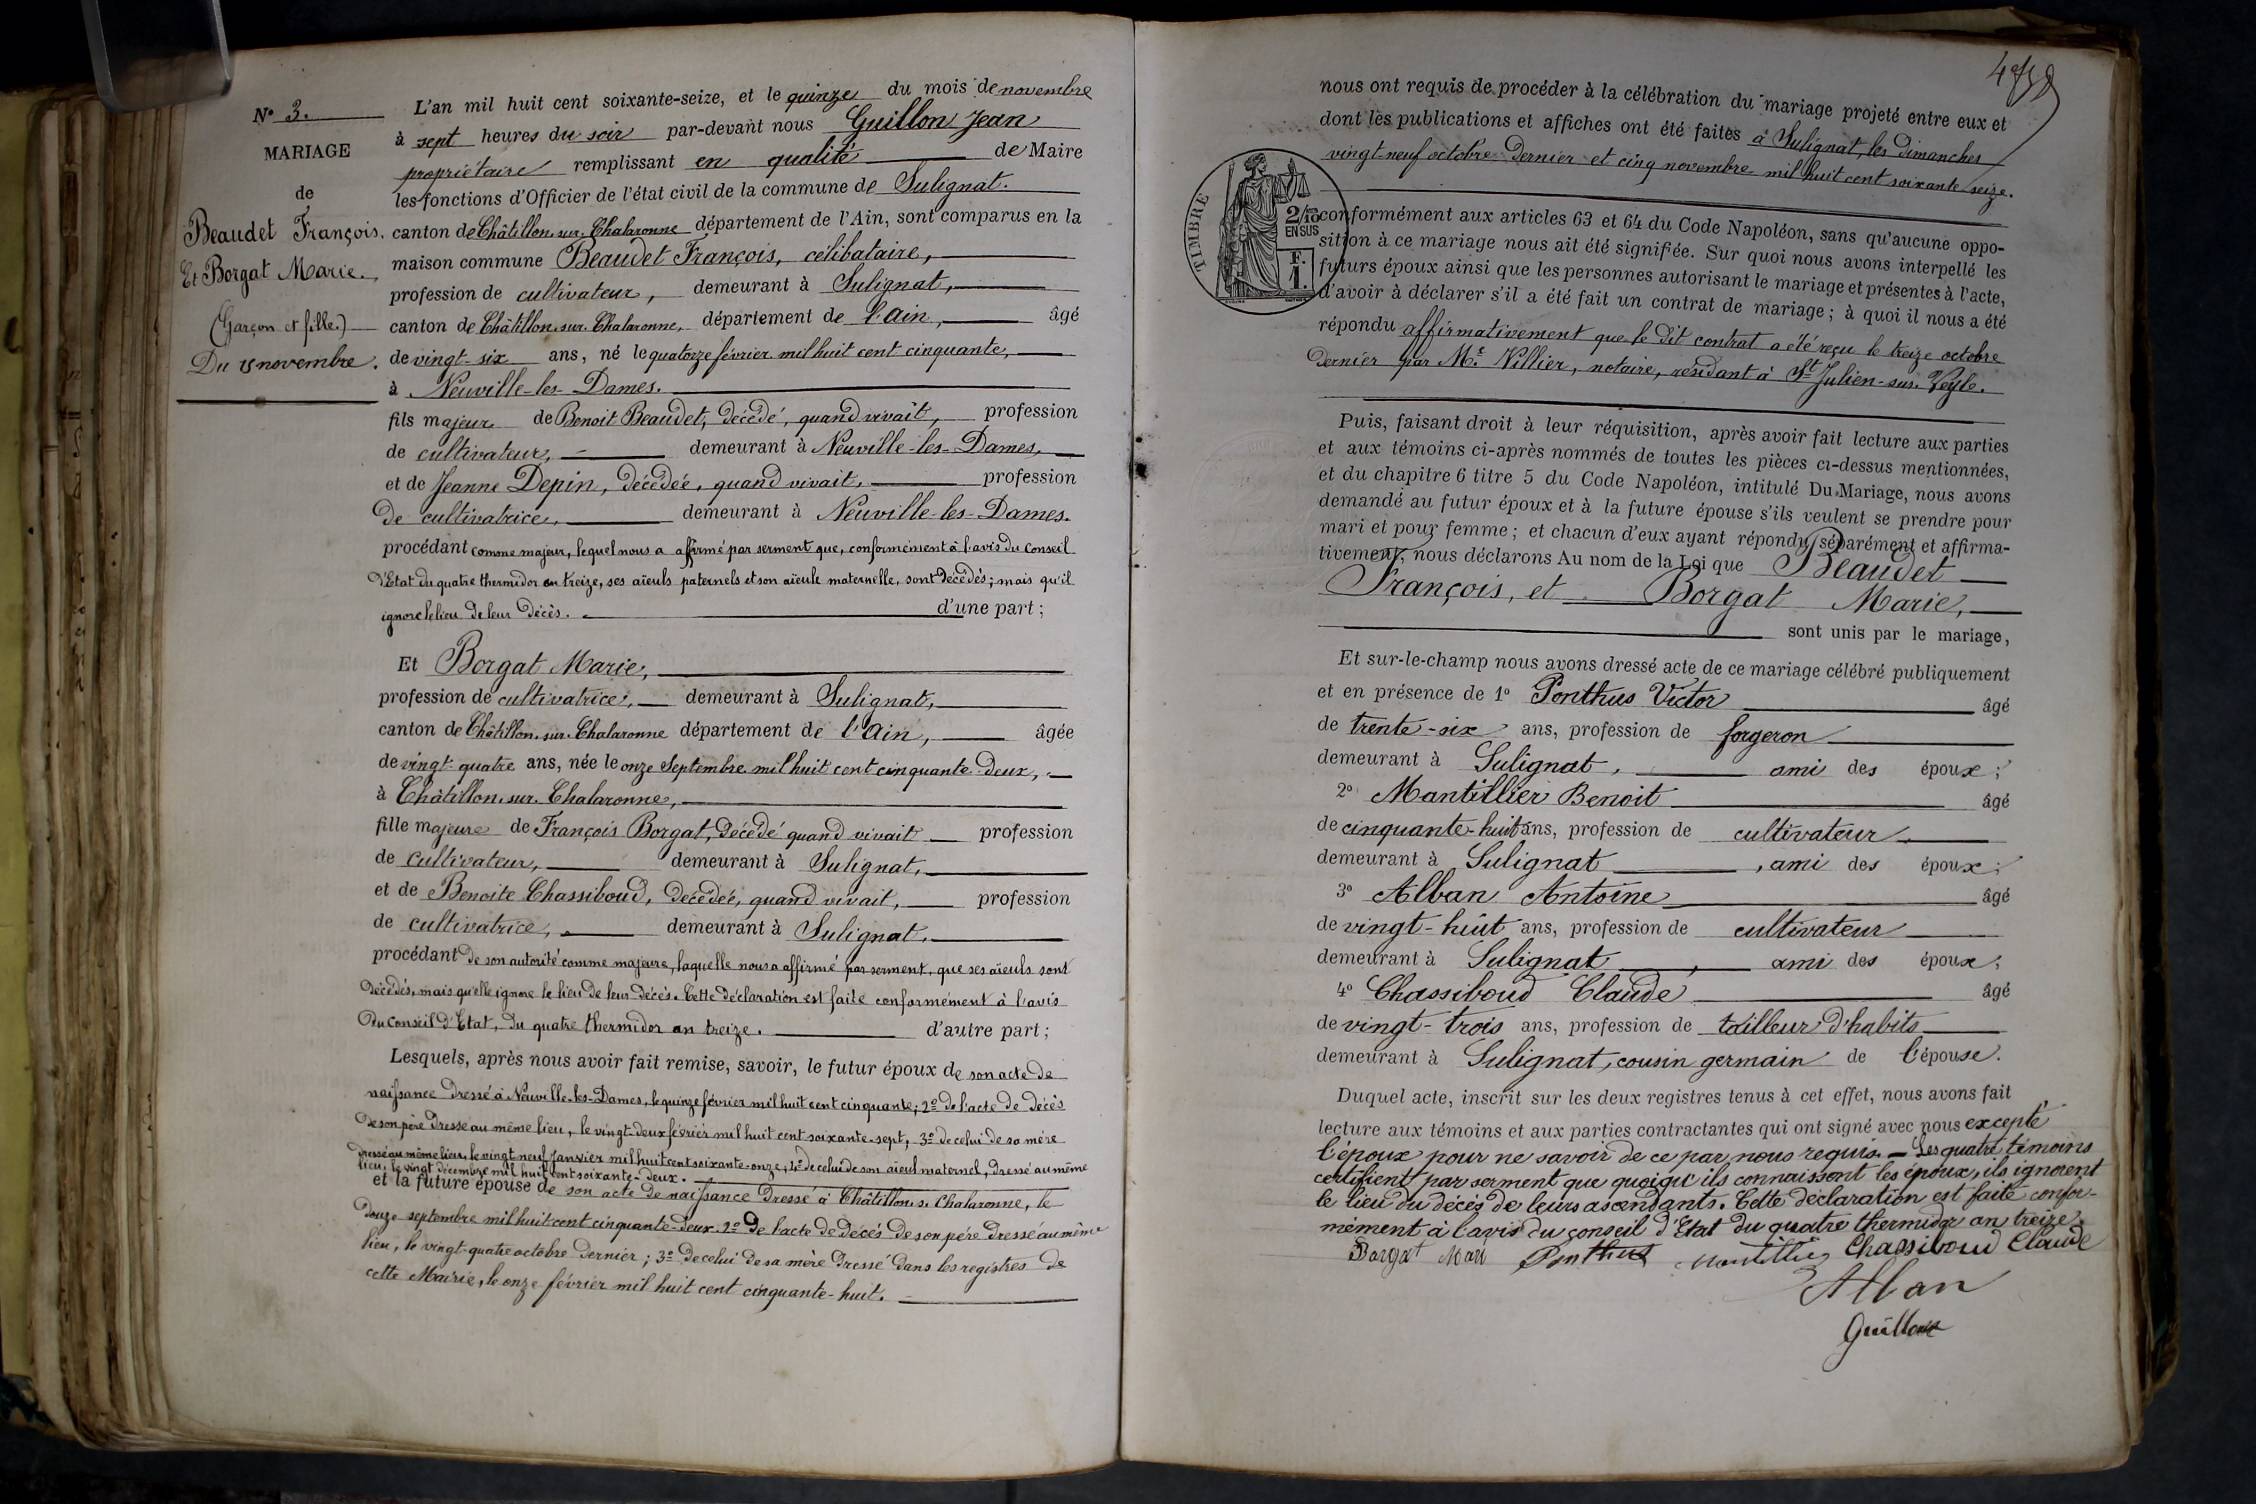 N° 3.
MARIAGE
de
Beaudet François.
Et Borgat Marie.
(Garçon et fille.)
Du 15 novembre.
L'an mil huit cent soixante-seize, et le quinze du mois de novembre
à sept heures du soir par-devant nous Guillon Jean
propriétaire remplissant en qualité de Maire
les fonctions d'Officier de l'état civil de la commune de Sulignat.
canton de Châtillon-sur-Chalaronne département de l'Ain, sont comparus en la
maison commune Beaudet François, célibataire,
profession de cultivateur, demeurant à Sulignat,
canton de Châtillon-sur-Chalaronne, département de l'ain, âgé
de vingt-six ans, né le quatorze février mil huit cent cinquante,
à Neuville-les-Dames.
fils majeur de Benoit Beaudet, décédé, quand vivait, profession
de cultivateur, demeurant à Neuville-les-Dames,
et de Jeanne Depin, décédée, quand vivait, profession
de cultivatrice, demeurant à Neuville-les-Dames.
procédant comme majeur, lequel nous a affirmé par serment que, conformément à l'avis du Conseil
d'Etat du quatre thermidor an treize, ses aïeuls paternels et son aïeule maternelle, sont décédés; mais qu'il
ignore le lieu de leur décès. d'une part;
Et Borgat Marie,
profession de cultivatrice, demeurant à Sulignat,
canton de Châtillon-sur-Chalaronne département de l'Ain, âgée
de vingt-quatre ans, née le onze Septembre mil huit cent cinquante-deux,
à Châtillon-sur-Chalaronne,
fille majeure de François Borgat, décédé quand vivait profession
de cultivateur, demeurant à Sulignat,
et de Benoite Chassiboud, décédée, quand vivait, profession
de cultivatrice, demeurant à Sulignat,
procédant de son autorité comme majeure, laquelle nous a affirmé par serment, que ses aïeuls sont
décédés, mais qu'elle ignore le lieu de leur décès. Cette déclaration est faite conformément à l'avis
du Conseil d'Etat, du quatre thermidor an treize. d'autre part;
Lesquels, après nous avoir fait remise, savoir, le futur époux de son acte de
naissance dressé à Neuville-les-Dames, le quinze février mil huit cent cinquante; 2° de l'acte de décès
de son père dressé au même lieu, le vingt-deux février mil huit cent soixante-sept, 3° de celui de sa mère
dressé au même lieu, le vingt neuf Janvier mil huit cent soixante-onze, 4° de celui de son aïeul maternel, dressé au même
lieu, le vingt décembre mil huit cent soixante-deux.
et la future épouse de son acte de naissance dressé à Châtillon s. Chalaronne, le
douze septembre mil huit cent cinquante-deux. 2° De l'acte de décès de son père dressé au même
lieu, le vingt-quatre octobre dernier; 3° de celui de sa mère dressé dans les registres de
cette Mairie, le onze février mil huit cent cinquante-huit.
nous ont requis de procéder à la célébration du mariage projeté entre eux et
dont les publications et affiches ont été faites à Sulignat, les dimanches
vingt-neuf octobre dernier et cinq novembre mil huit cent soixante seize.
TIMBRE
2/10
EN SUS
F.
1.
conformément aux articles 63 et 64 du Code Napoléon, sans qu'aucune oppo-
sition à ce mariage nous ait été signifiée. Sur quoi nous avons interpellé les
futurs époux ainsi que les personnes autorisant le mariage et présentes à l'acte,
d'avoir à déclarer s'il a été fait un contrat de mariage; à quoi il nous a été
répondu affirmativement que le dit contrat a été reçu le treize octobre
dernier par Me. Villier, notaire, résidant à St Julien-sur-Veyle.
Puis, faisant droit à leur réquisition, après avoir fait lecture aux parties
et aux témoins ci-après nommés de toutes les pièces ci-dessus mentionnées,
et du chapitre 6 titre 5 du Code Napoléon, intitulé Du Mariage, nous avons
demandé au futur époux et à la future épouse s'ils veulent se prendre pour
mari et pour femme; et chacun d'eux ayant répondu séparément et affirma-
tivement, nous déclarons Au nom de la Loi que Beaudet
François, et Borgat Marie,
sont unis par le mariage,
Et sur-le-champ nous avons dressé acte de ce mariage célébré publiquement
et en présence de 1° Ponthus Victor âgé
de trente-six ans, profession de forgeron
demeurant à Sulignat, ami des époux;
2° Mantillier Benoit âgé
de cinquante-huit ans, profession de cultivateur
demeurant à Sulignat, ami des époux;
3° Alban Antoine âgé
de vingt-huit ans, profession de cultivateur
demeurant à Sulignat, ami des époux;
4° Chassiboud Claude âgé
de vingt-trois ans, profession de tailleur d'habits
demeurant à Sulignat, cousin germain de l'épouse.
Duquel acte, inscrit sur les deux registres tenus à cet effet, nous avons fait
lecture aux témoins et aux parties contractantes qui ont signé avec nous excepté
l'époux pour ne savoir de ce par nous requis. — Les quatre témoins
certifient par serment que quoiqu'ils connaissent les époux, ils ignorent
le lieu du décès de leurs ascendants. Cette déclaration est faite confor-
mément à l'avis du conseil d'Etat du quatre thermidor an treize.
Borgat Mari Ponthus Mantillier Chassiboud Claude
Alban
Guillon